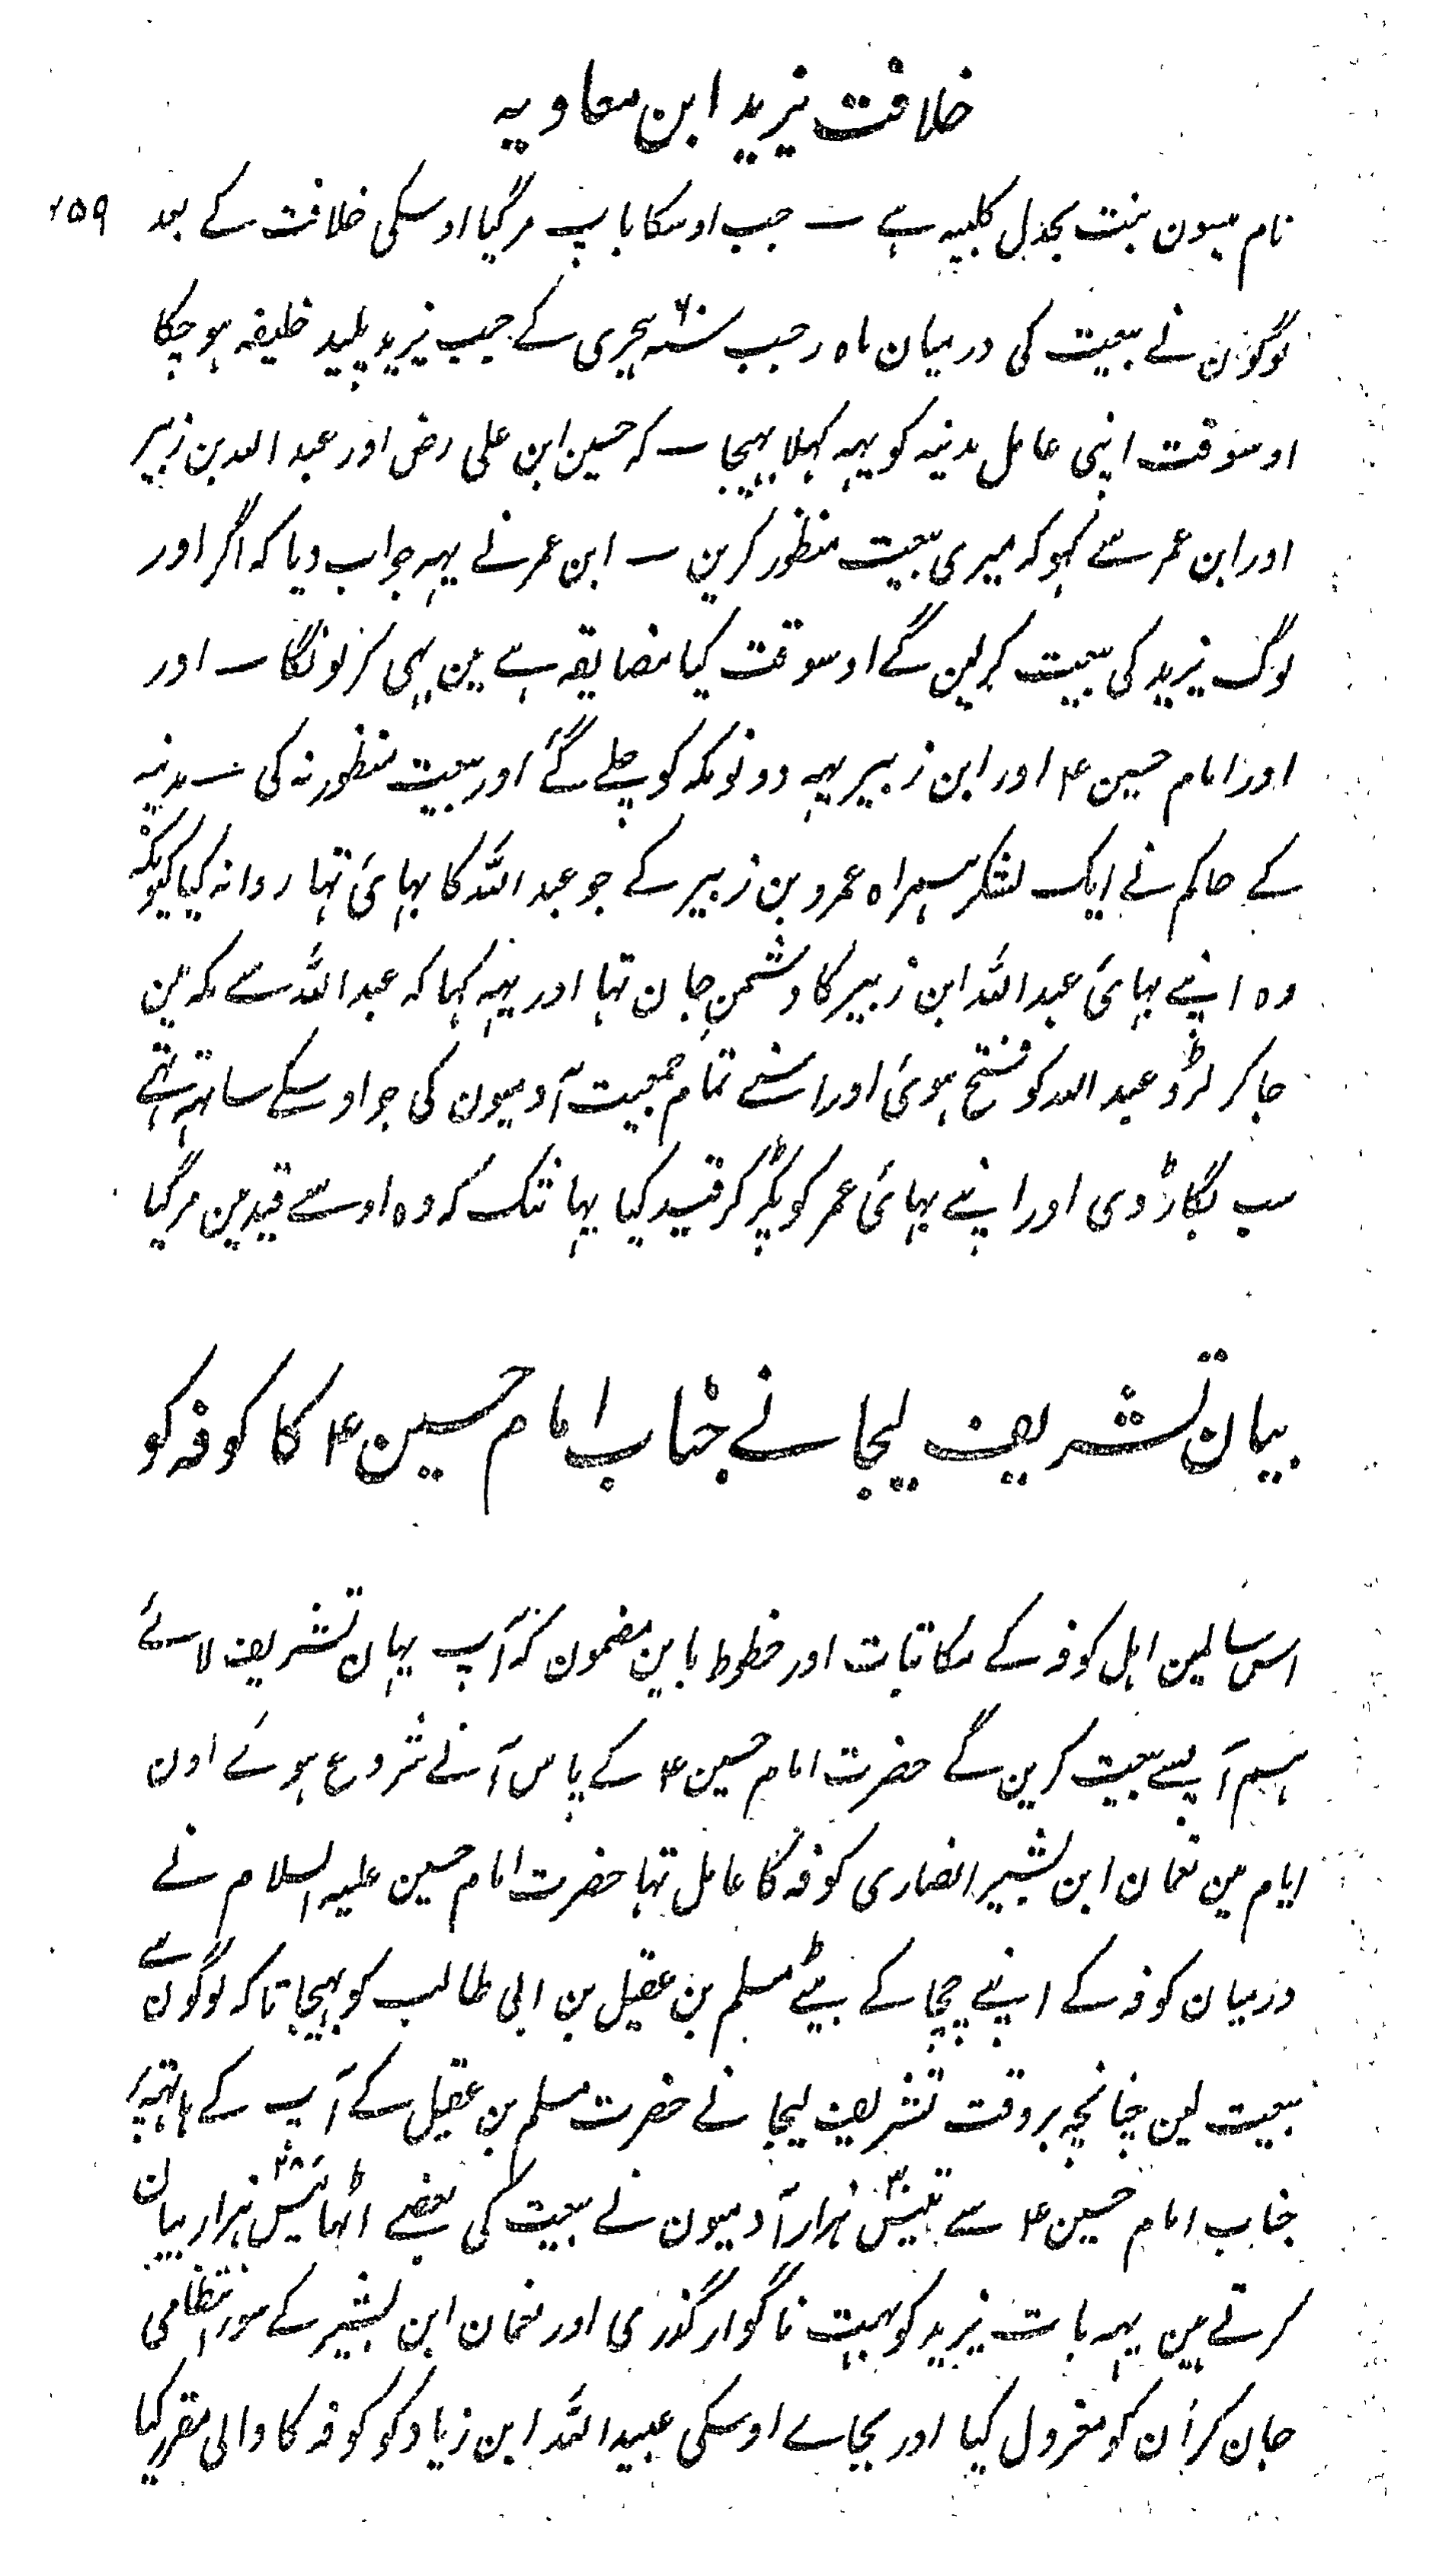 خلافت یزید ابن معاویہ
۲۵۹
نام میسون بنت بجذل کلبیہ ہے ۔ جب اوسکا باپ مرگیا اوسکی خلافت کے بعد
لوگون نے بیعت کی درمیان ماہ رجب سنہ ۶۰ ہجری کے جب یزید پلید خلیفہ ہوچکا
اوسوقت اپنی عامل مدینہ کو یہہ کہلا بہیجا ۔ کہ حسین ابن علی رض اور عبد اللہ بن زبیر
اور ابن عمر سے کہو کہ میری بیعت منظور کرین ۔ ابن عمر نے یہہ جواب دیا کہ اگر اور
لوگ یزید کی بیعت کرلین گے اوسوقت کیا مضایقہ ہے مین بہی کرلونگا ۔ اور
اور امام حسین ۴ اور ابن زبیر یہہ دونو مکہ کو چلے گئے اور بیعت منظور نہ کی ۔ مدینہ
کے حاکم نے ایک لشکر ہمراہ عمرو بن زبیر کے جو عبد اللہ کا بہائی تہا روانہ کیا کیونکہ
وہ اپنے بہائی عبد اللہ ابن زبیر کا دشمن جان تہا اور یہہ کہا کہ عبد اللہ سے مکہ مین
جاکر لڑو عبد اللہ کو فتح ہوئی اور اسنے تمام جمعیت آدمیون کی جو اوسکے ساتہہ تہے
سب بگاڑ دی اور اپنے بہائی عمر کو پکڑ کر قید کیا یہانتک کہ وہ اوسے قید مین مرگیا
بیان تشریف لیجانے جناب امام حسین ۴ کا کوفہ کو
اس سالمین اہل کوفہ کے مکاتبات اور خطوط باین مضمون کہ آپ یہان تشریف لائے
ہم آپسے بیعت کرین گے حضرت امام حسین ۴ کے پاس آنے شروع ہوئے اون
ایام مین نعمان ابن بشیر انصاری کوفہ کا عامل تہا حضرت امام حسین علیہ السلام نے
درمیان کوفہ کے اپنے چچا کے بیٹے مسلم بن عقیل بن ابی طالب کو بہیجا تاکہ لوگون سے
بیعت لین چنانچہ بروقت تشریف لیجانے حضرت مسلم بن عقیل کے آپ کے ہاتہہ پر
جناب امام حسین ۴ سے تیس ۳۰ ہزار آدمیون نے بیعت کی بعضے اٹہائیس ۲۸ ہزار بیان
کرتے مین یہہ بات یزید کو بہت ناگوار گذری اور نعمان ابن بشیر کے سور انتظامی
جان کر اُن کو معزول کیا اور بجاے اوسکی عبید اللہ ابن زیاد کو کوفہ کا والی مقرر کیا